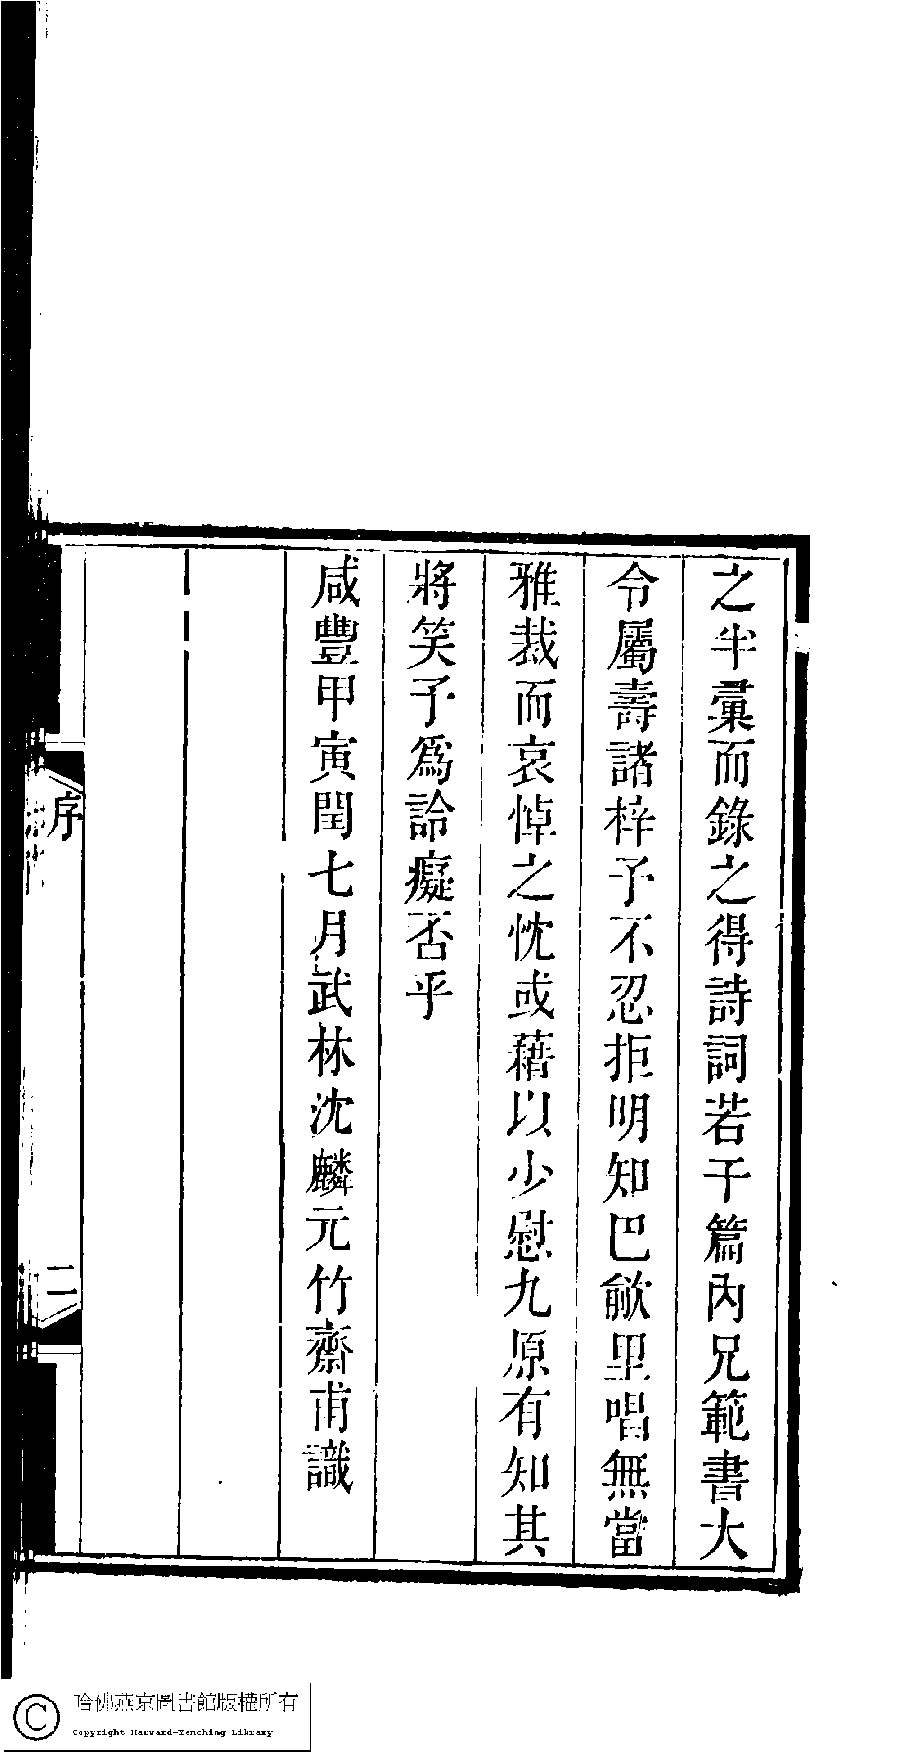 之半彙而錄之得詩詞若干篇內兄範書大
令屬壽諸梓予不忍拒明知巴歈里唱無當
雅裁而哀悼之忱或藉以少慰九原有知其
將笑予為詅癡否乎
咸豐甲寅閏七月武林沈麟元竹齋甫識
序
二
哈佛燕京圖書館版權所有
Copyright Harvard-Yenching Library